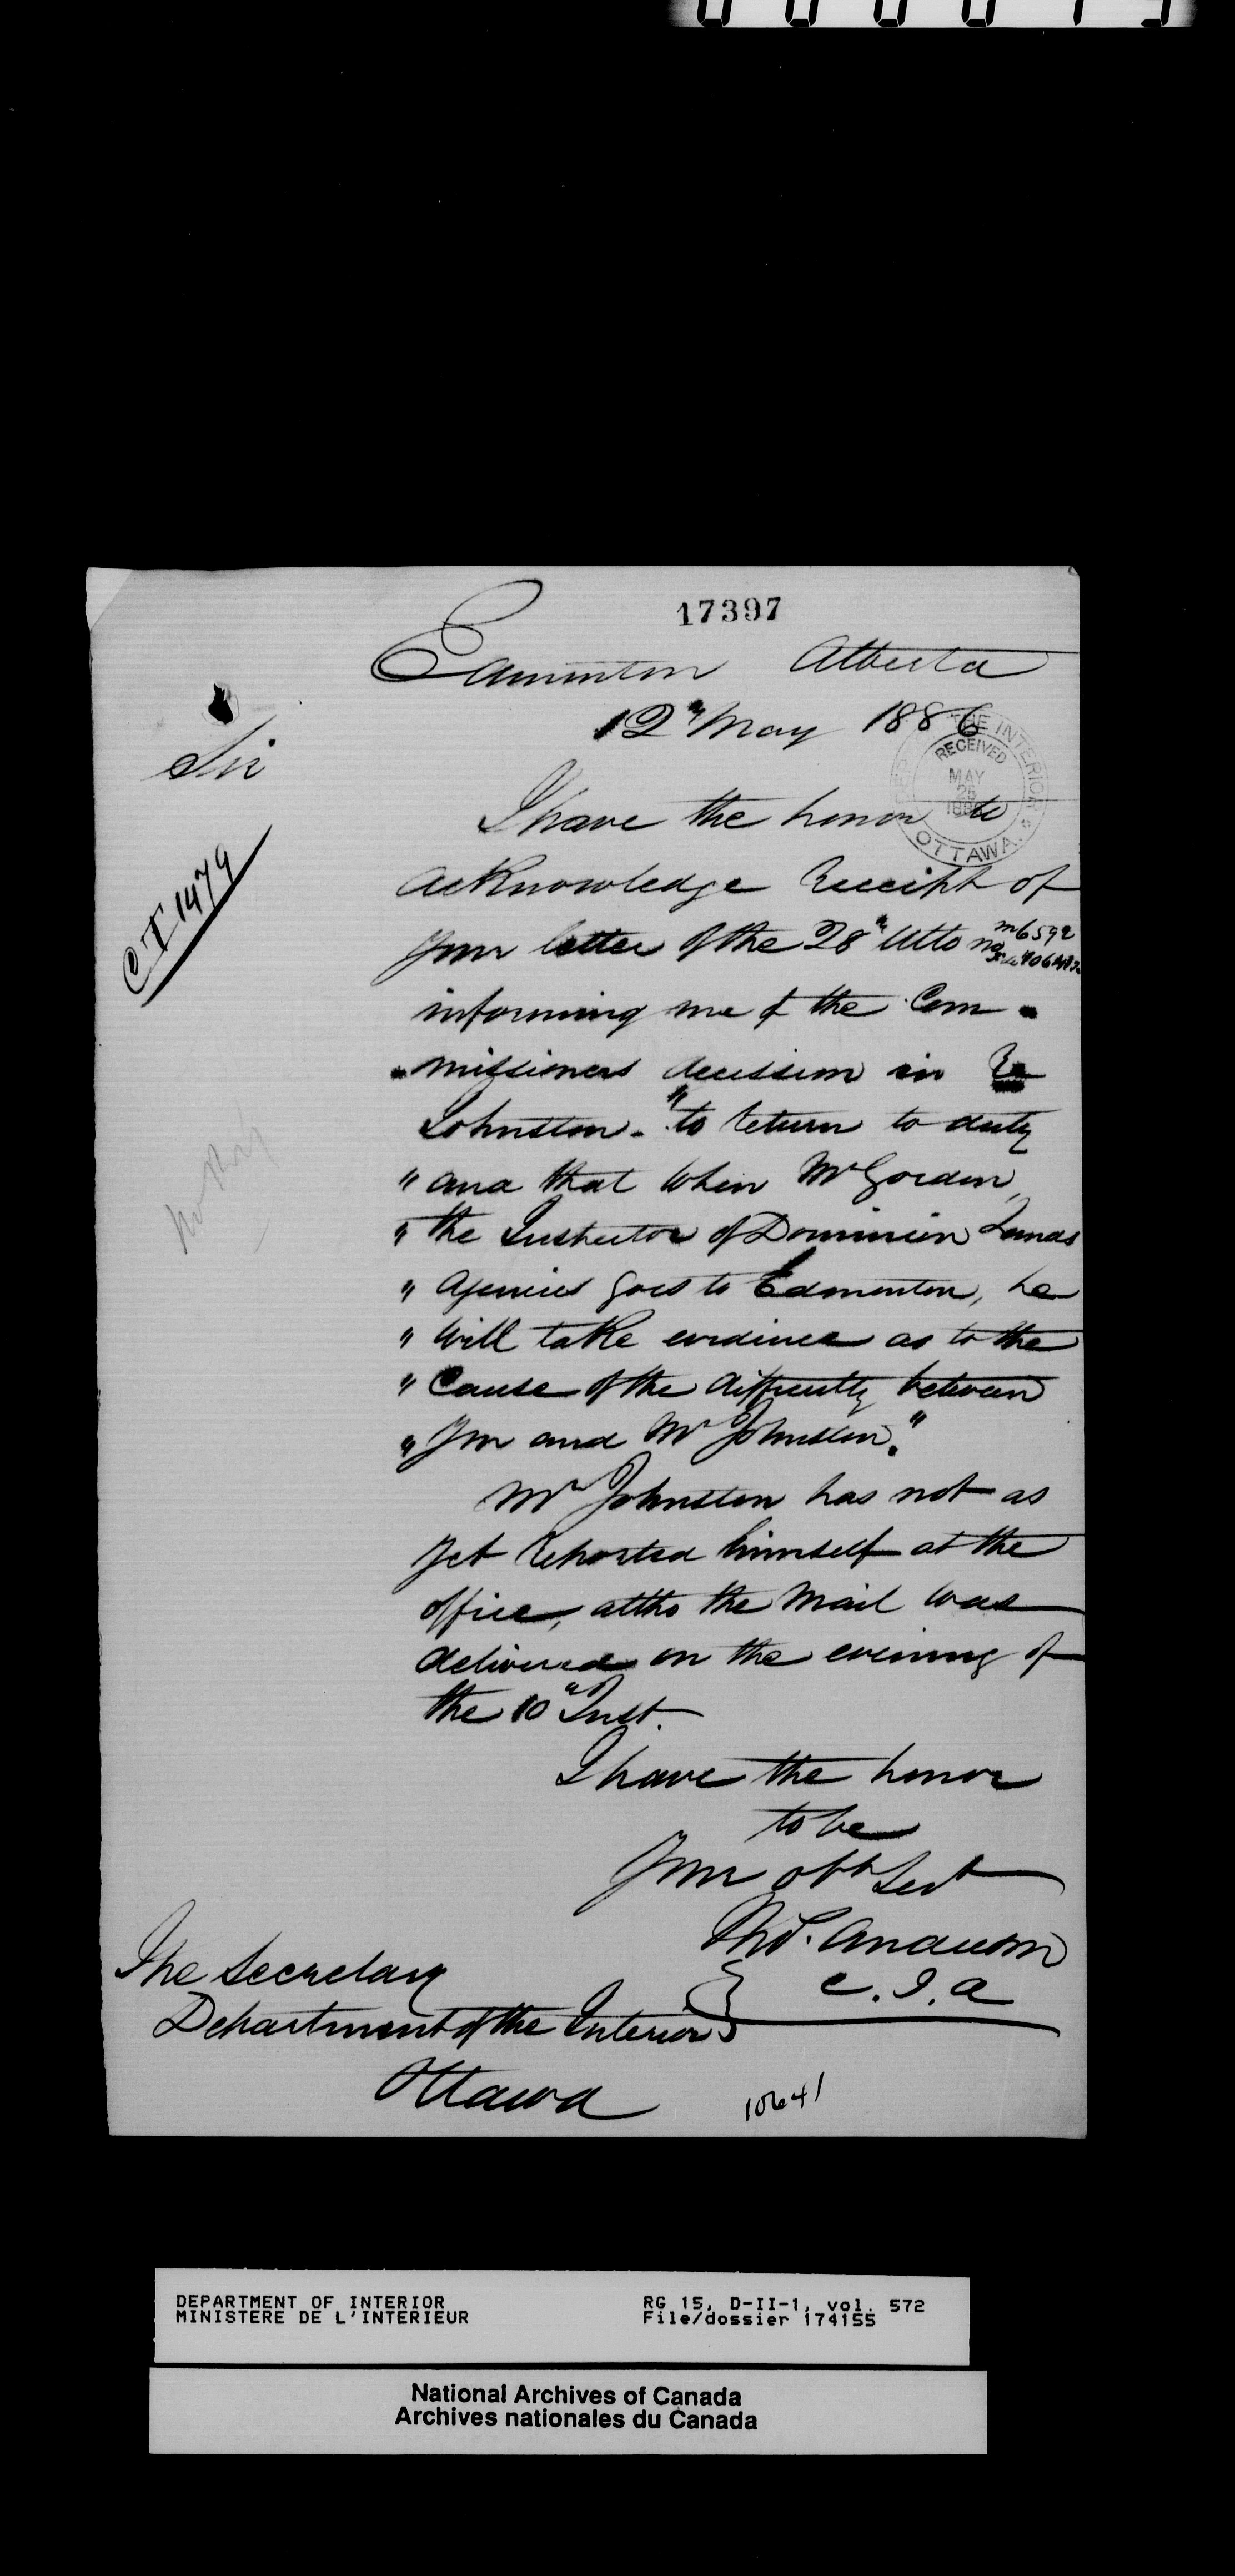 17397
Edmonton Alberta
12th May 1886
DEPT OF THE INTERIOR
RECEIVED
MAY
25
1886
OTTAWA.
Sir
I have the honor to
acknowledge Receipt of
your letter of the 28th Ulto no
m6592
informing me of the Com-
-missioners decission in Re
Johnston - "to return to duty
" and that when Mr Gordon,
" the Inspector of Dominion Lands
" Agencies goes to Edmonton, he
" will take evidence as to the
" Cause of the difficulty between
" you and Mr Johnston."
Mr Johnston has not as
yet reported himself at the
office, altho the mail was
delivered on the evening of
the 10th Inst.
I have the honor
to be
Your obt Sevt
Thos. Anderson
C.I.A
The Secretary
Department of the Interior
Ottawa
10641
CT 1479
DEPARTMENT OF INTERIOR
MINISTERE DE L'INTERIEUR
RG 15, D-II-1, vol. 572
File/dossier 174155
National Archives of Canada
Archives nationales du Canada